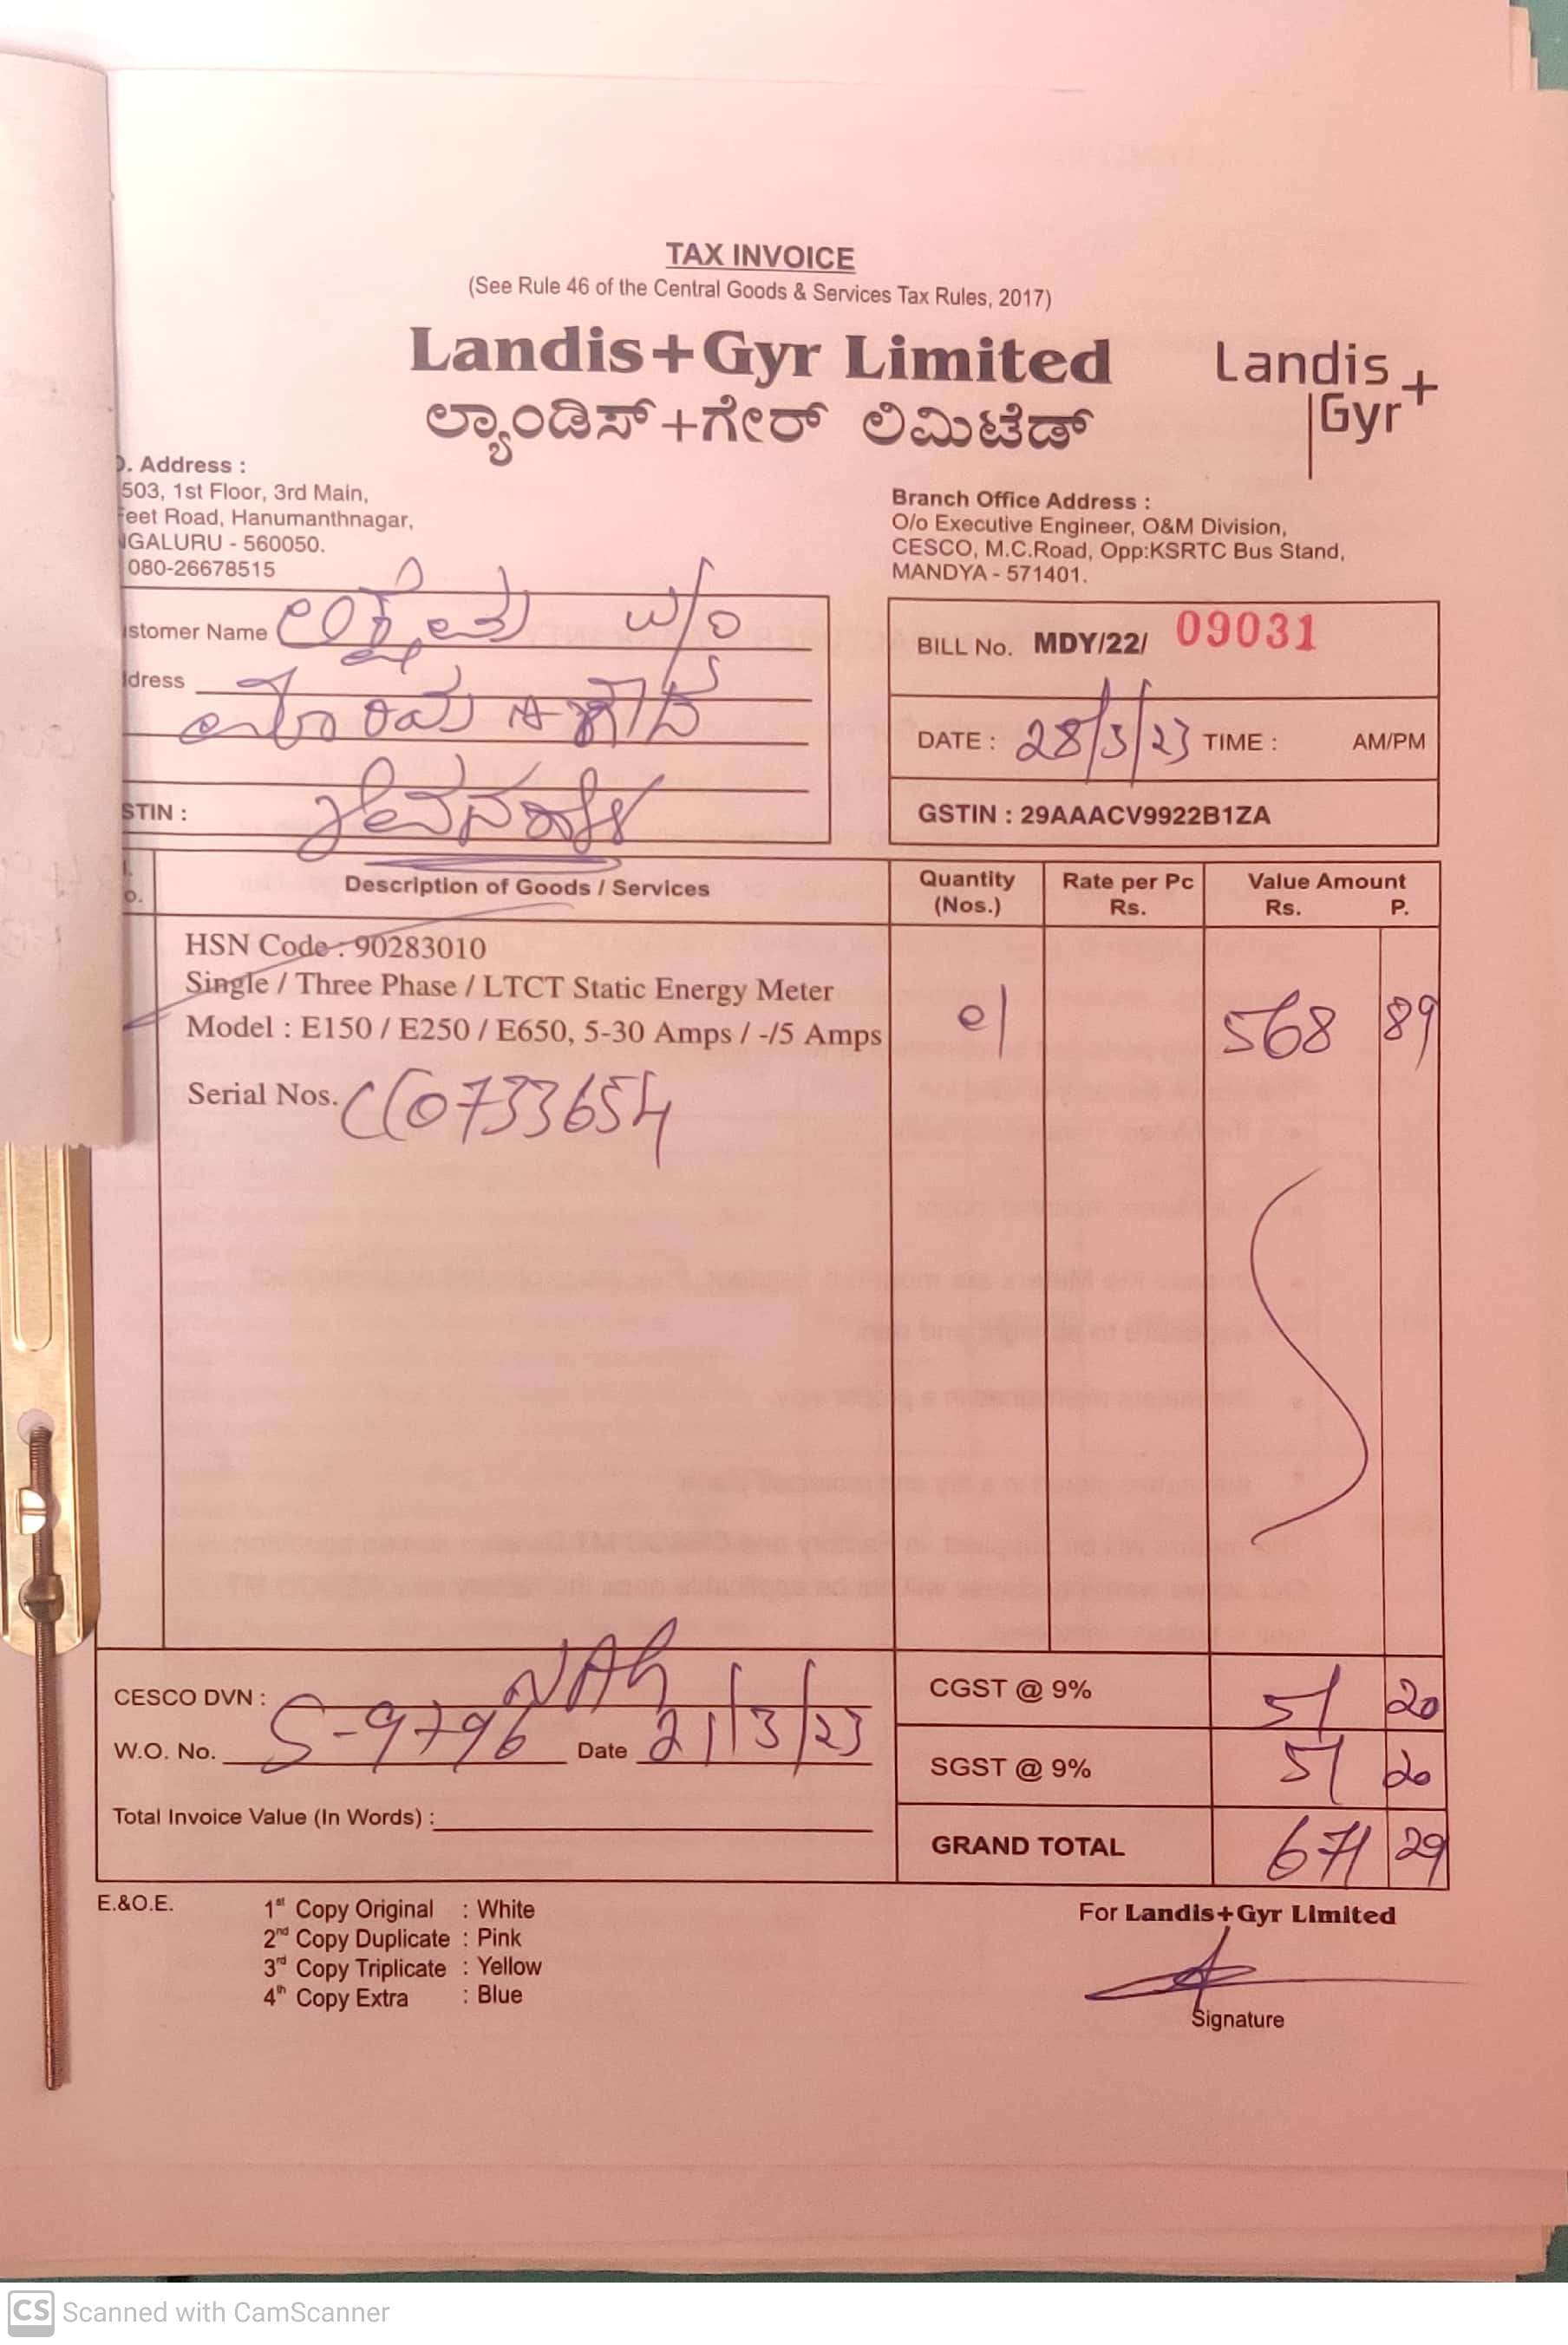 TAX INVOICE
(See Rule 46 of the Central Goods & Services Tax Rules, 2017)
Landis+Gyr Limited
ಲ್ಯಾಂಡಿಸ್+ಗೇರ್ ಲಿಮಿಟೆಡ್
Landis+
Gyr
. Address :
503, 1st Floor, 3rd Main,
eet Road, Hanumanthnagar,
GALURU - 560050.
080-26678515
Branch Office Address :
O/o Executive Engineer, O&M Division,
CESCO, M.C.Road, Opp:KSRTC Bus Stand,
MANDYA - 571401.
stomer Name w/o
dress
STIN :
BILL No. MDY/22/ 09031
DATE : 28/3/23 TIME : AM/PM
GSTIN : 29AAACV9922B1ZA
Description of Goods / Services
Quantity (Nos.)
Rate per Pc Rs.
Value Amount
Rs. P.
HSN Code : 90283010
Single / Three Phase / LTCT Static Energy Meter
Model : E150 / E250 / E650, 5-30 Amps / -/5 Amps 01 568 89
Serial Nos. CC0733654
CESCO DVN :
W.O. No. S-9796 Date 21/3/23
Total Invoice Value (In Words) :
CGST @ 9% 51 20
SGST @ 9% 51 20
GRAND TOTAL 671 29
E.&O.E.
1st Copy Original : White
2nd Copy Duplicate : Pink
3rd Copy Triplicate : Yellow
4th Copy Extra : Blue
For Landis+Gyr Limited
Signature
CS Scanned with CamScanner